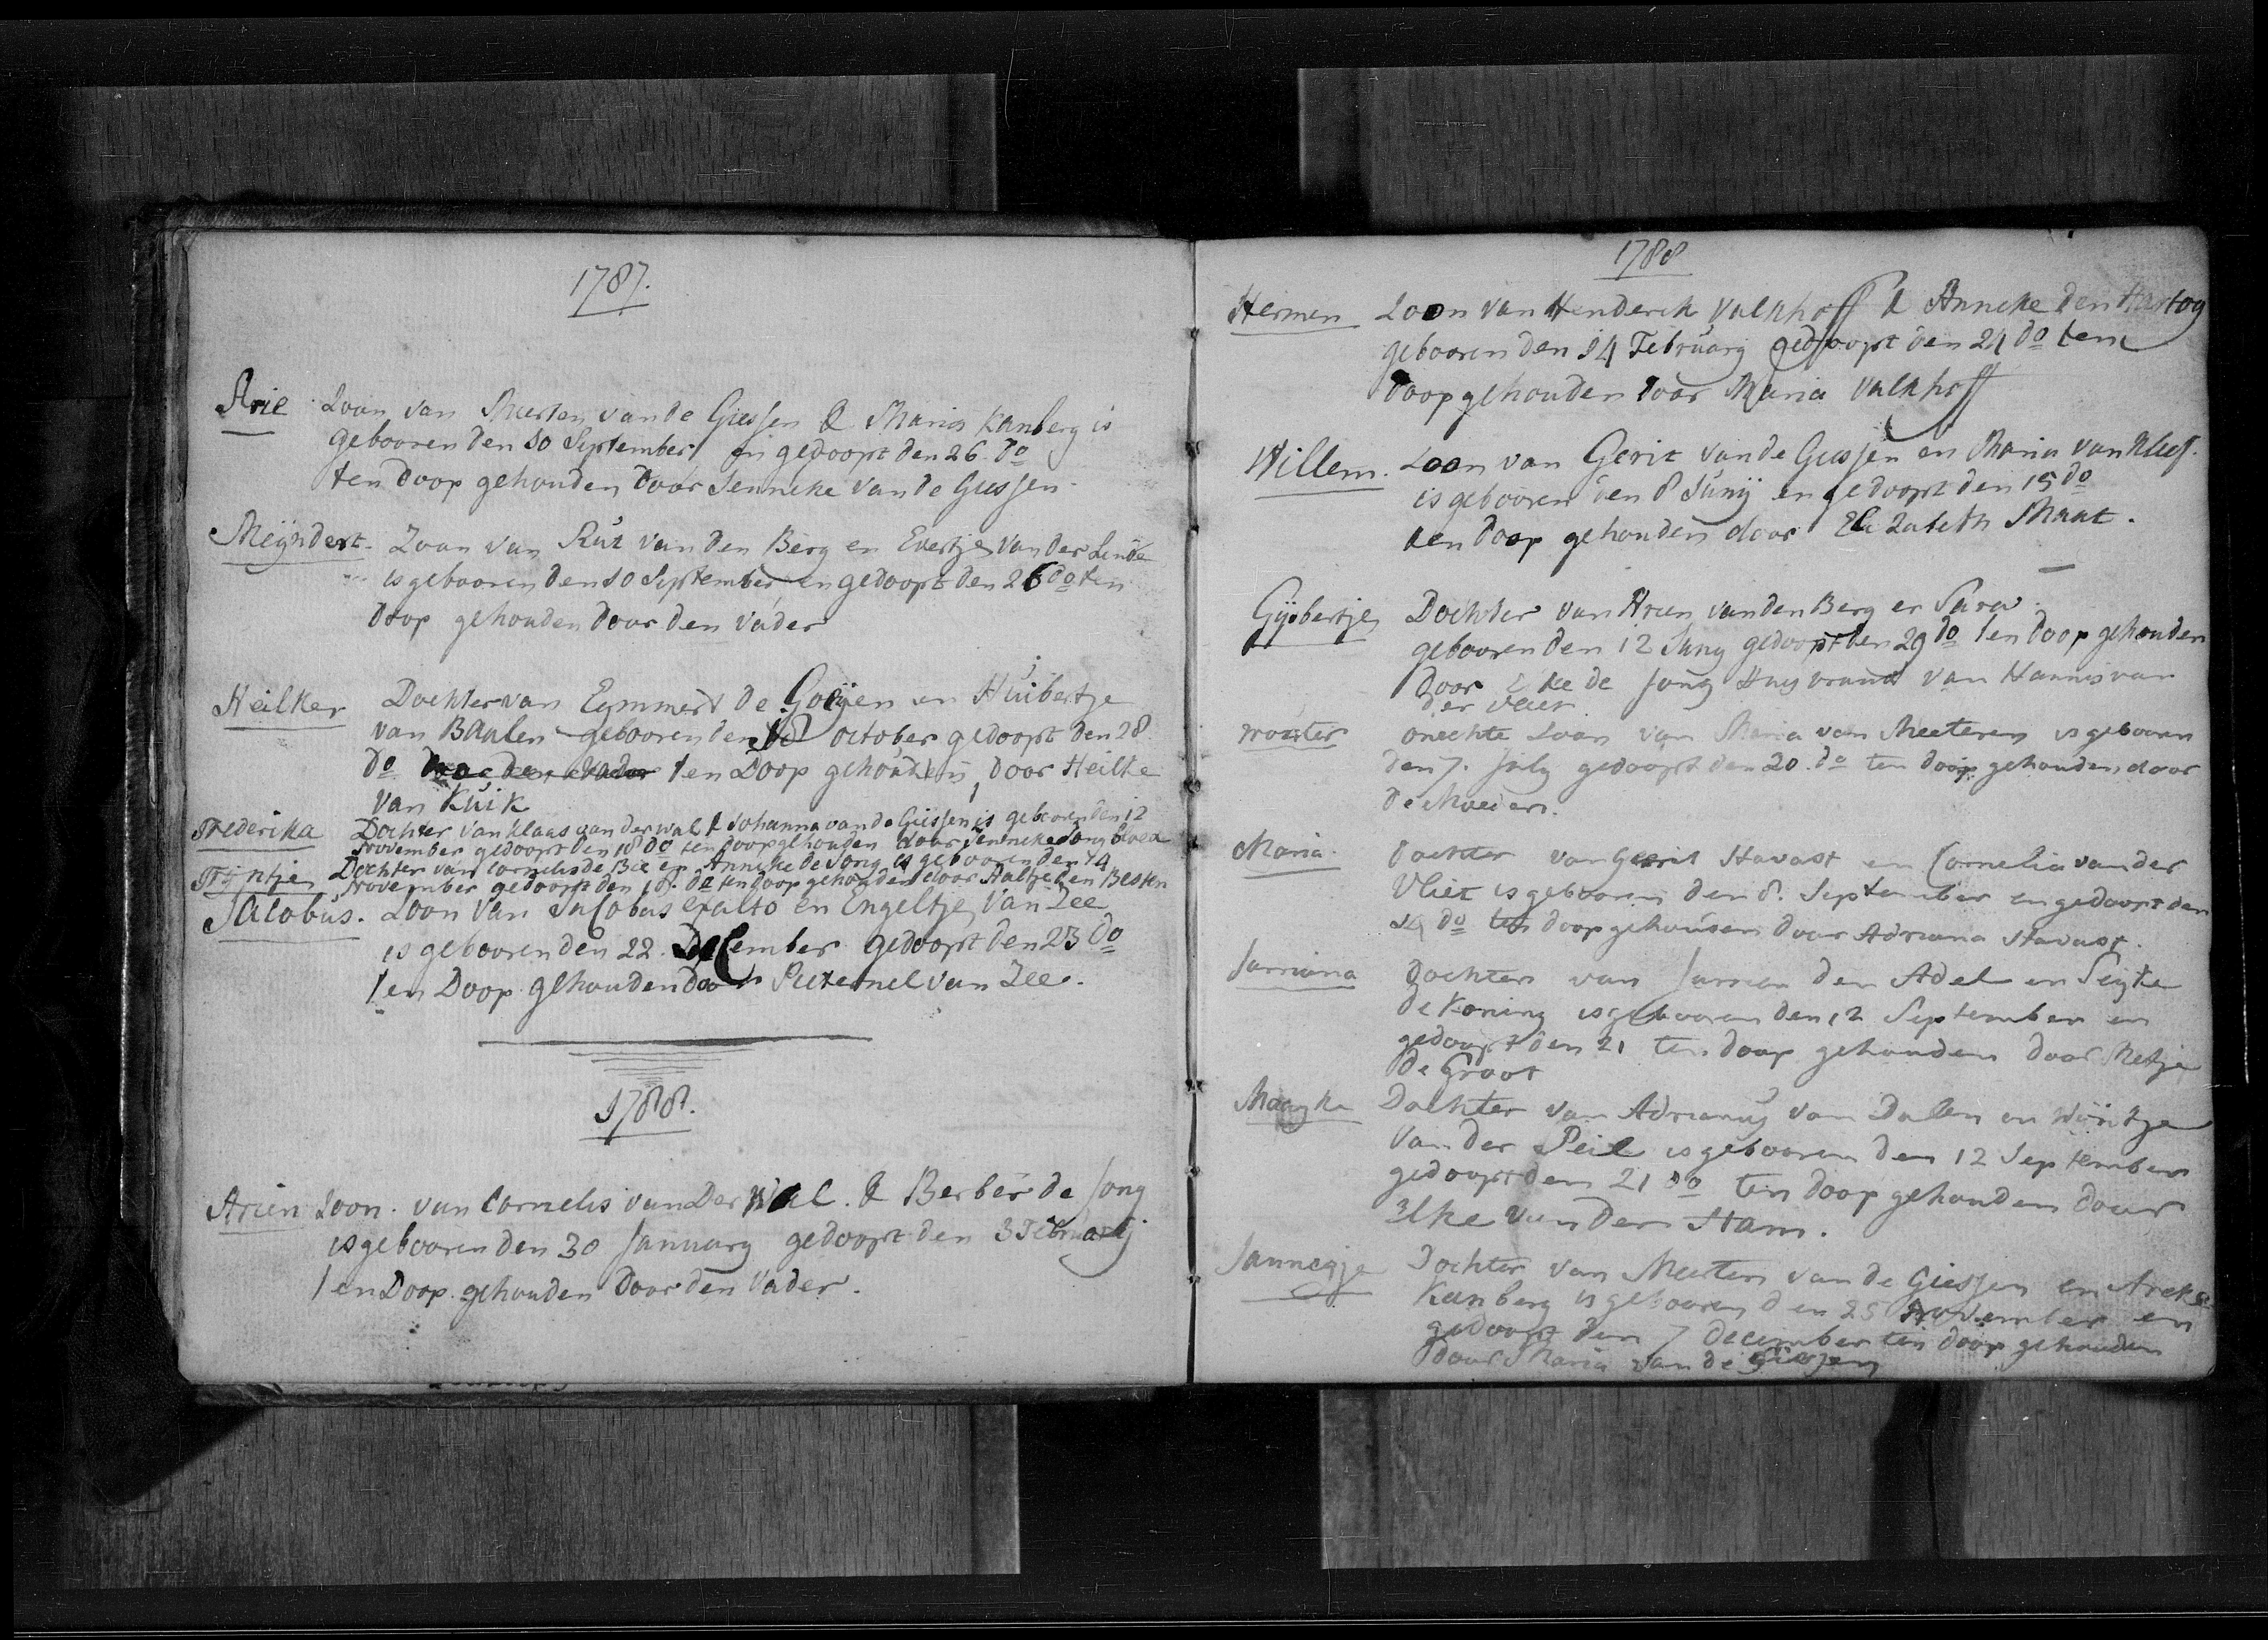 1787.
Arie Zoon van Meerten vande Giessen & Maria Kanberg is
gebooren den 10 September en gedoopt den 26 do
ten doop gehouden door Jenneke van de Giessen
Meijndert. Zoon van Rut van den Berg en Evertje van der Linde
is gebooren den 10 September en gedoopt den 26 do ten
doop gehouden door den vader
Heilker Dochter van Emmert de Goeijen en Huibertje
van Baalen gebooren den 18 october gedoopt den 28
do door den vader ten Doop gehouden door Heilke
van Kuik
Frederika Dochter van Klaas van der wal & Johanna van de Giessen is gebooren den 12
November gedoopt den 18 do ten doop gehouden door Jenneke Jong bloed
Trijntje Dochter van Cornelis de Bie en Anneke de Jong is gebooren den 14
November gedoopt den 18. do ten doop gehouden door Aaltje den Besten
Jacobus. Zoon van Jacobus exalto en Engeltje van Zee
is gebooren den 22. December gedoopt den 23 do
ten Doop gehouden door Pieternel van Zee.
1788.
Arien Zoon. van Cornelis van Der Wal. & Berber de Jong
is gebooren den 30 January gedoopt den 3 February
ten Doop gehouden door den Vader.
1788
Hermen Zoon van Henderik Valkhoff & Anneke den Hartog
gebooren den 14 February gedoopt den 24 do ten
doop gehouden door Maria Valkhoff
Willem. Zoon van Gerit vande Giessen en Maria van Kleef.
is gebooren den 8 Junij en gedoopt den 15 do
ten doop gehouden door Elizabeth Maat.
Gijsbertje Dochter van Arien van den Berg en Sara
gebooren den 12 Juny gedoopt den 29 do ten doop gehouden
door Eke de Jong Huysvrouw van Hannis van
der vliet
wouter onechte Zoon van Maria van Meeteren is gebooren
den 7. July gedoopt den 20. do ten doop gehouden door
de Moeder.
Maria. dochter van Gerrit Havast en Cornelia van der
Vliet is gebooren den 8. September en gedoopt den
14 do ten doop gehouden door Adriana Havast.
Jarriana dochter van Jarrien den Adel en Sijtie
de Koning is gebooren den 12 September en
gedoopt den 21 ten doop gehouden door Metje
de Groot
Maayke Dochter van Adrianus van Dalen en Wijntje
van der Peil is gebooren den 12 September
gedoopt den 21 do ten doop gehouden door
Elke van der Ham.
Jannegje Dochter van Meerten van de Giessen en
Kanberg is gebooren den 25 November en
gedoopt den 7 december ten doop gehouden
door Maria van de Giessen